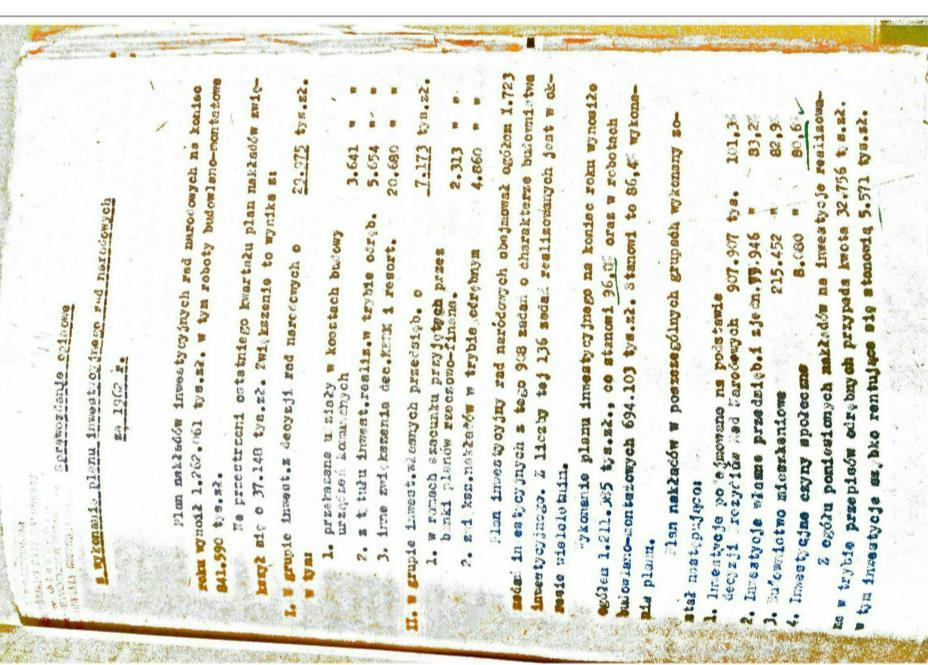 sprawozdanie opisowe
z wykonania planu inwestycyjnego rad narodowych
za 1962 r.
Plan nakładów inwestycyjnych rad narodowych na koniec
roku wynosił 1.262.061 tys.zł. w tym roboty budowlano-montażowe
841.590 tys.zł.
Na przestrzeni ostatniego kwartału plan nakładów zwię-
kszył się o 37.148 tys.zł. Zwiększenie to wynika z:
I. W grupie inwest.z decyzji rad narodowych o 29.975 tys.zł.
w tym:
1. przekazane udziały w kosztach budowy
urządzeń komunalnych 3.641 " "
2. z tytułu inwest.realiz.w trybie odręb. 5.654 " "
3. inne zwiększenia dec. i resort. 20.680 " "
II. W grupie inwest.własnych przedsięb. o 7.173 tys.zł.
1. w ramach szacunku przyjętych przez
banki planów rzeczowo-finans. 2.313 " "
2. zwiększ.nakładów w trybie odrębnym 4.860 " "
Plan inwestycyjny rad narodowych obejmował ogółem 1.723
zadań inwestycyjnych z tego 968 zadań o charakterze budownictwa
inwestycyjnego. Z liczby tej 136 zadań realizowanych jest w ok-
resie wieloletnim.
Wykonanie planu inwestycyjnego na koniec roku wynosiło
ogółem 1.211.385 tys.zł., co stanowi 96,0% oraz w robotach
budowlano-montażowych 694.103 tys.zł. Stanowi to 86,% wykona-
nia planu.
Plan nakładów w poszczególnych grupach wykonany zo-
stał następująco:
1. Inwestycje podejmowane na podstawie
decyzji prezydiów Rad Narodowych 907.907 tys. 101,3%
2. Inwestycje własne przedsięb.i zjedn. .946 " 83,2%
3. Budownictwo mieszkaniowe 215.452 " 82,9%
4. Inwestycje czyny społeczne 8.080 " 80,6%
Z ogółu poniesionych nakładów na inwestycje realizowa-
ne w trybie przepisów odrębnych przypada kwota 32.756 tys.zł.
w tym inwestycje szybko rentujące się stanowią 5.571 tys.zł.